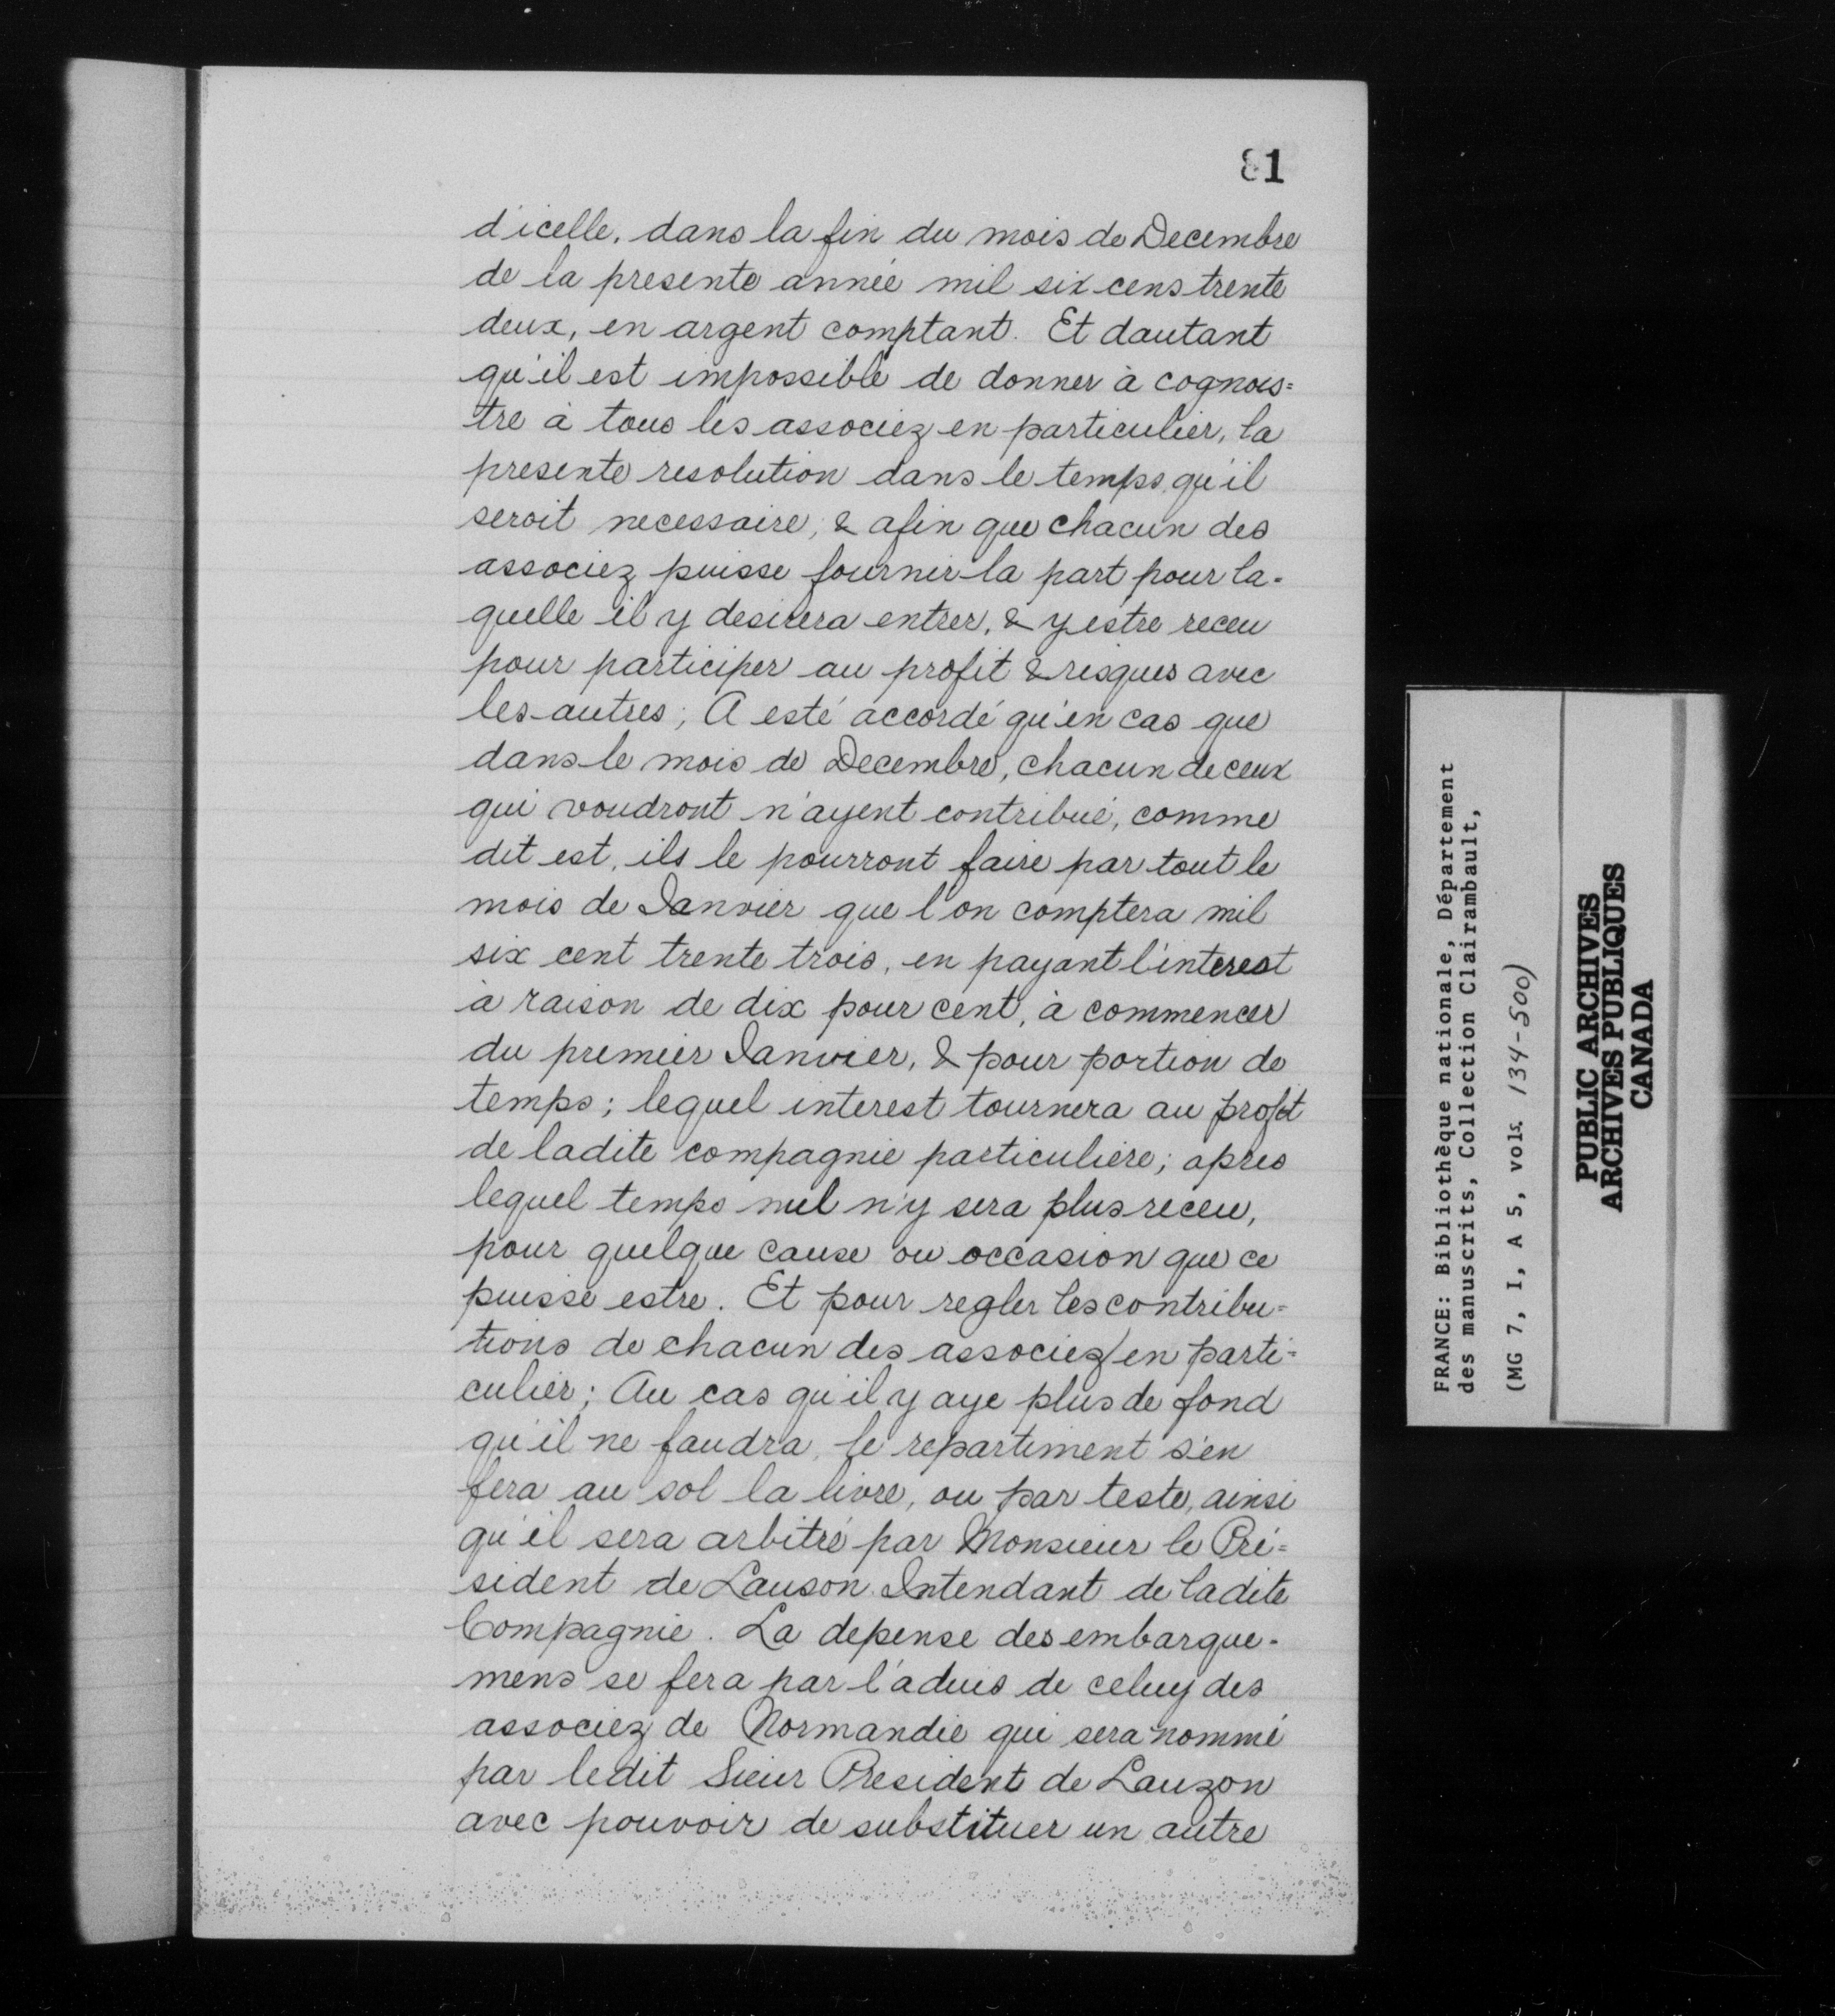 81
d'icelle, dans la fin du mois de Decembre
de la presente année mil six cens trente
deux, en argent comptant. Et dautant
qu'il est impossible de donner à cognois=
tre à tous les associez en particulier, la
presente resolution dans le temps qu'il
seroit necessaire, & afin que chacun des
associez puisse fournir la part pour la-
quelle il y desirera entrer, & y estre receu
pour participer au profit & risques avec
les autres; A esté accordé qu'en cas que
dans le mois de Decembre, chacun de ceux
qui voudront n'ayent contribué, comme
dit est, ils le pourront faire par tout le
mois de Ianvier que l'on comptera mil
six cent trente trois, en payant l'interest
à raison de dix pour cent, à commencer
du premier Ianvier, & pour portion de
temps; lequel interest tournera au profit
de ladite compagnie particuliere; apres
lequel temps nul n'y sera plus receu,
pour quelque cause ou occasion que ce
puisse estre. Et pour regler les contribu=
tions de chacun des associez en parti=
culier; Au cas qu'il y aye plus de fond
qu'il ne faudra, le repartiment s'en
fera au sol la livre, ou par teste, ainsi
qu'il sera arbitré par Monsieur le Pré=
sident de Lauson Intendant de ladite
Compagnie. La depense des embarque-
mens se fera par l'aduis de celuy des
associez de Normandie qui sera nommé
par ledit Sieur President de Lauzon
avec pouvoir de substituer un autre
FRANCE: Bibliothèque nationale, Département
des manuscrits, Collection Clairambault,
(MG 7, I, A 5, vols. 134-500)
PUBLIC ARCHIVES
ARCHIVES PUBLIQUES
CANADA